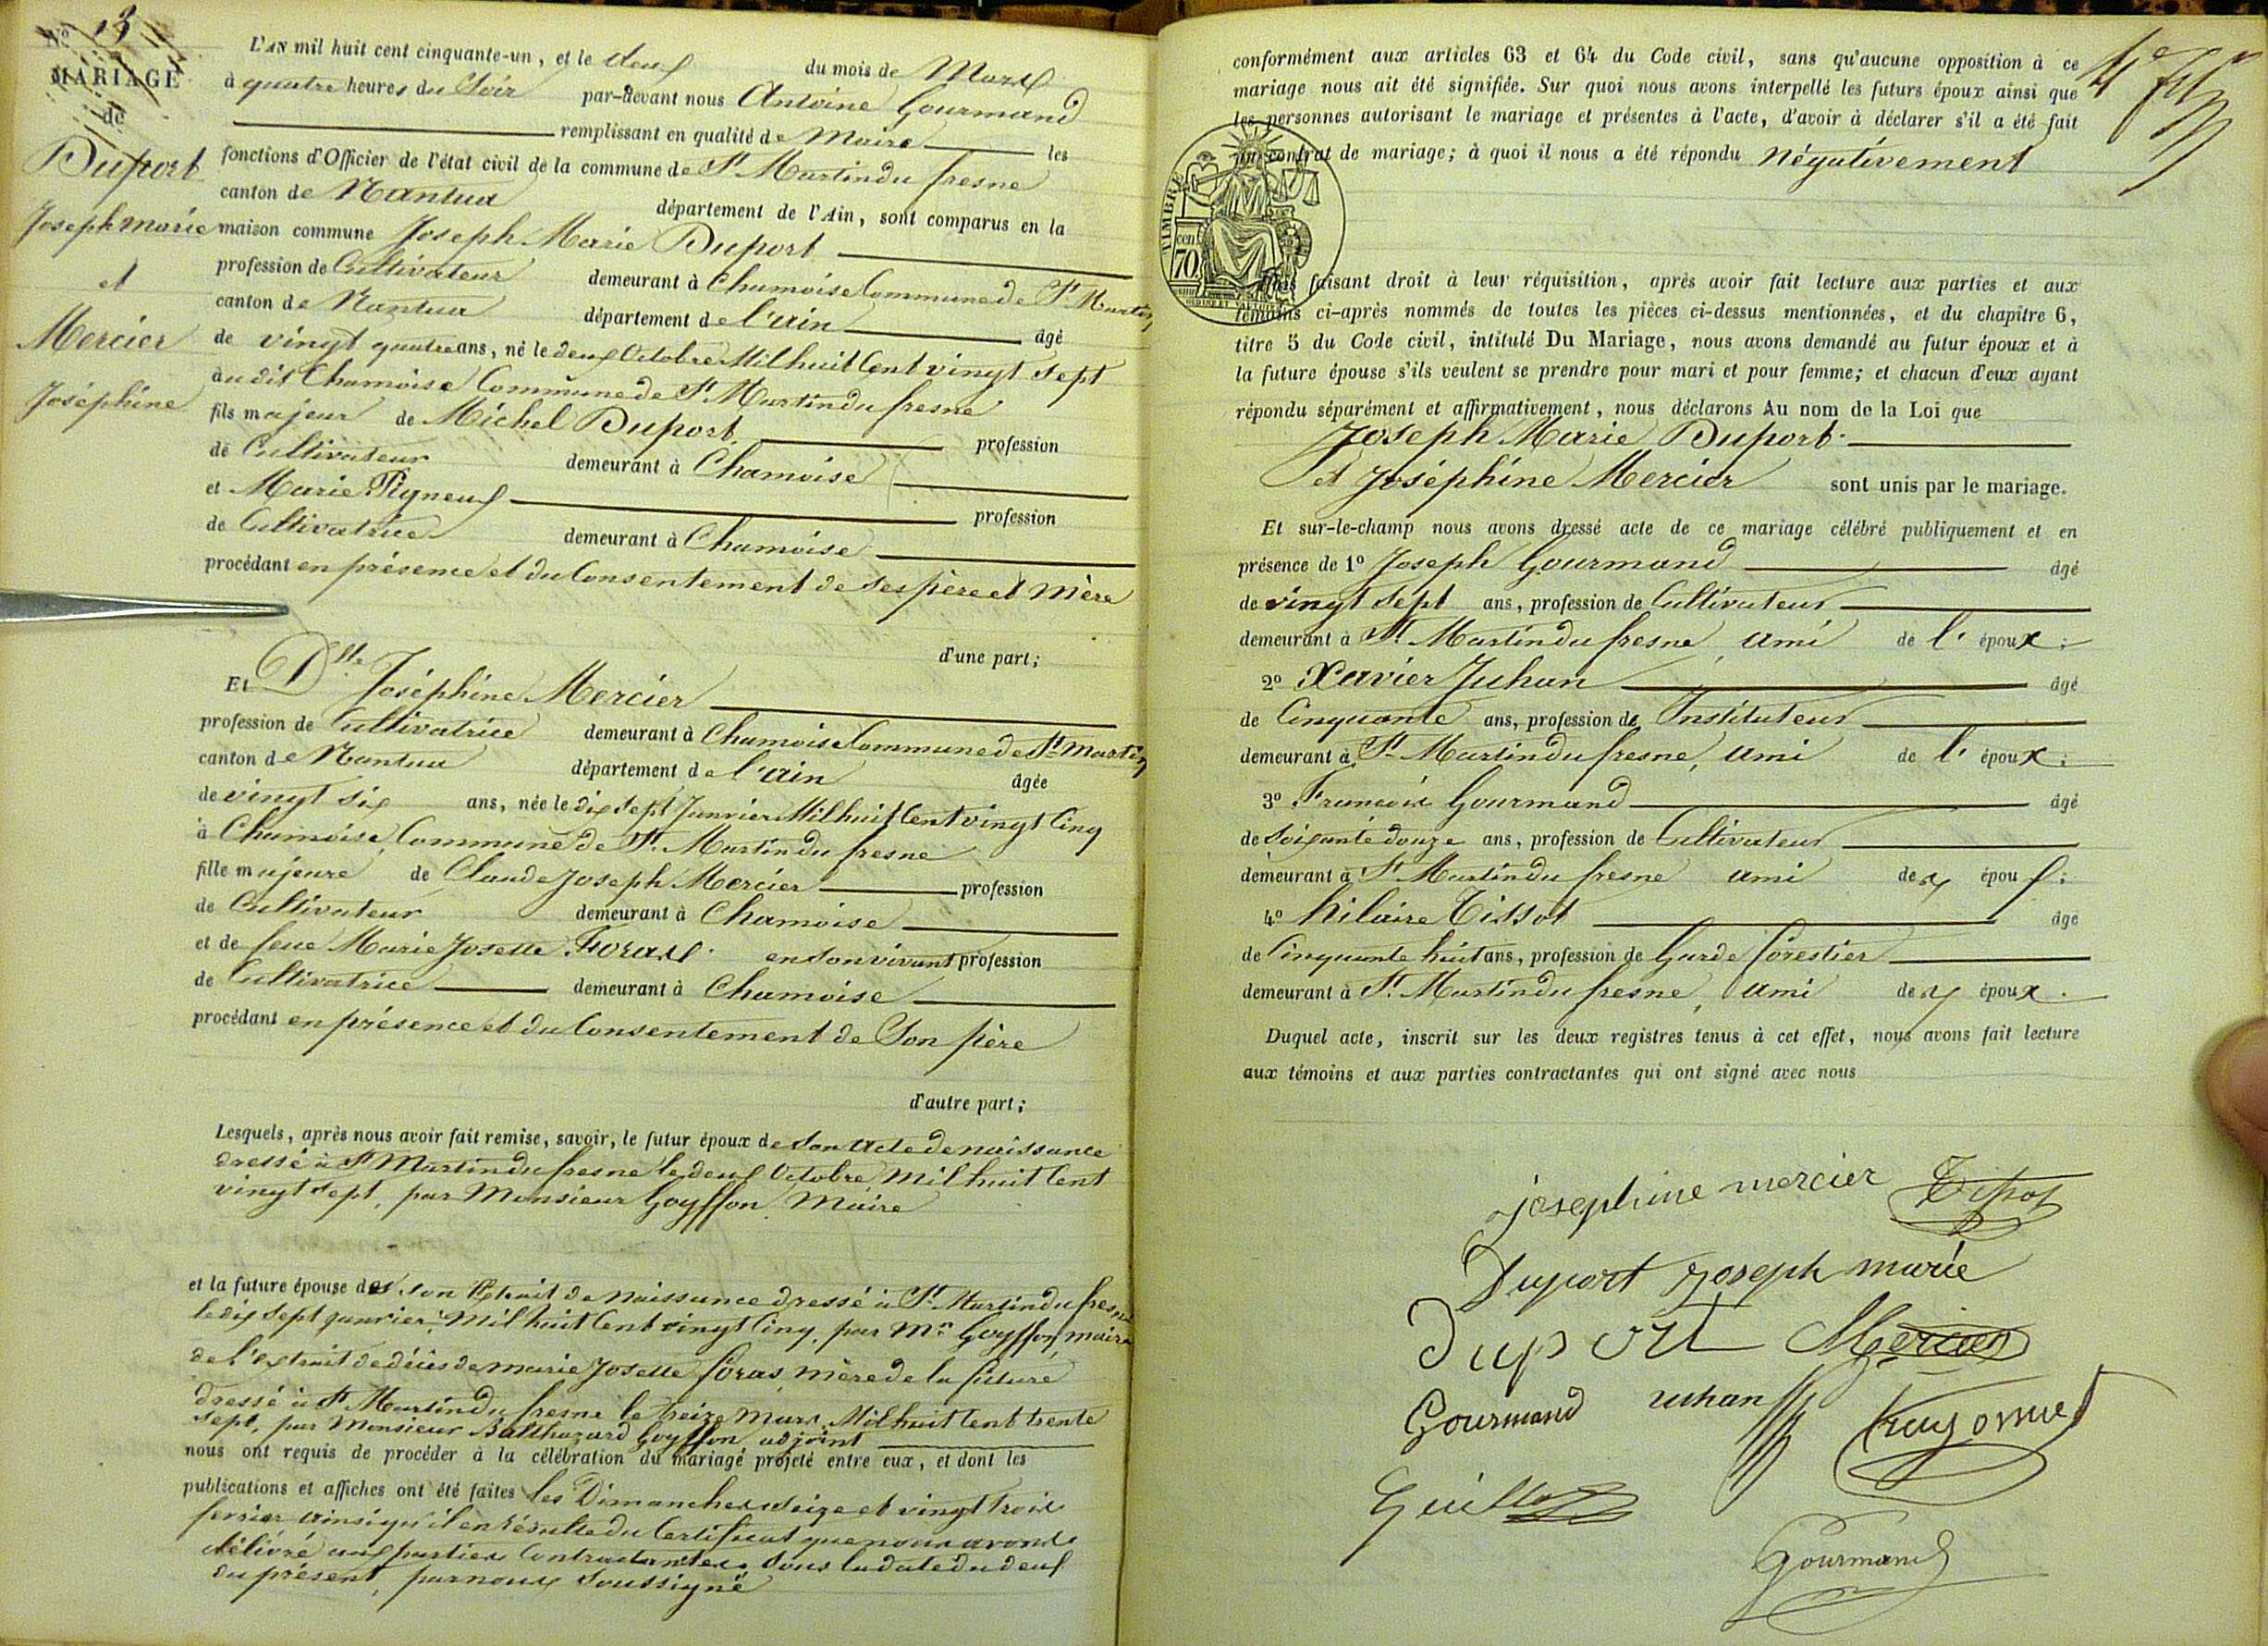 N° 13
MARIAGE
de
Duport
Joseph Marie
et
Mercier
Joséphine
L'AN mil huit cent cinquante-un, et le deux du mois de Mars
à quatre heures du Soir par-devant nous Antoine Gourmand
remplissant en qualité de Maire les
fonctions d'Officier de l'état civil de la commune de St Martin du fresne
canton de Nantua département de l'Ain, sont comparus en la
maison commune Joseph Marie Duport
profession de Cultivateur demeurant à Chamoise Commune de St Martin
canton de Nantua département de l'ain âgé
de vingt quatre ans, né le deux Octobre Mil huit Cent vingt Sept
au dit Chamoise Commune de St Martin du fresne
fils majeur de Michel Duport profession
de Cultivateur demeurant à Chamoise
et Marie Pigneux profession
de Cultivatrice demeurant à Chamoise
procédant en présence et du Consentement de ses père et Mère
d'une part;
Et Dlle Joséphine Mercier
profession de Cultivatrice demeurant à Chamoise Commune de St Martin
canton de Nantua département de l'ain âgée
de vingt six ans, née le dix sept Janvier Mil huit Cent vingt Cinq
à Chamoise, Commune de St Martin du fresne
fille majeure de Claude Joseph Mercier profession
de Cultivateur demeurant à Chamoise
et de feue Marie Josette Foras en Son vivant profession
de Cultivatrice demeurant à Chamoise
procédant en présence et du Consentement de Son père
d'autre part;
Lesquels, après nous avoir fait remise, savoir, le futur époux de Son acte de naissance
dressé à St Martin du fresne le deux Octobre Mil huit Cent
vingt sept, par Monsieur Goyffon Maire
et la future épouse de Son Extrait de Naissance dressé à St Martin du fresne
le dix Sept janvier Mil huit Cent vingt Cinq, par Mr Goyffon, maire
de l'extrait de décès de Marie Josette foras mère de la future
dressé à St Martin du fresne le treize Mars Mil huit Cent trente
sept, par Monsieur Balthazard Goyffon adjoint
nous ont requis de procéder à la célébration du mariage projeté entre eux, et dont les
publications et affiches ont été faites les Dimanches Seize et vingt trois
fevrier ainsi qu'il en résulte du Certificat que nous avons
délivré aux parties Contractantes, Sous la date du deux
du présent, par nous Soussigné
conformément aux articles 63 et 64 du Code civil, sans qu'aucune opposition à ce
mariage nous ait été signifiée. Sur quoi nous avons interpellé les futurs époux ainsi que
les personnes autorisant le mariage et présentes à l'acte, d'avoir à déclarer s'il a été fait
un contrat de mariage; à quoi il nous a été répondu Négativement
TIMBRE
70 cen
Mais faisant droit à leur réquisition, après avoir fait lecture aux parties et aux
témoins ci-après nommés de toutes les pièces ci-dessus mentionnées, et du chapitre 6,
titre 5 du Code civil, intitulé Du Mariage, nous avons demandé au futur époux et à
la future épouse s'ils veulent se prendre pour mari et pour femme; et chacun d'eux ayant
répondu séparément et affirmativement, nous déclarons Au nom de la Loi que
Joseph Marie Duport
et Joséphine Mercier sont unis par le mariage.
Et sur-le-champ nous avons dressé acte de ce mariage célébré publiquement et en
présence de 1° Joseph Gourmand âgé
de vingt Sept ans, profession de Cultivateur
demeurant à St Martin du fresne, ami de l' époux;
2° Xavier Juhan âgé
de Cinquante ans, profession de Instituteur
demeurant à St Martin du fresne, ami de l' époux;
3° François Gourmand âgé
de Soixante douze ans, profession de Cultivateur
demeurant à St Martin du fresne ami des époux;
4° hilaire Tissot âgé
de Cinquante huit ans, profession de Garde forestier
demeurant à St Martin du fresne, ami des époux.
Duquel acte, inscrit sur les deux registres tenus à cet effet, nous avons fait lecture
aux témoins et aux parties contractantes qui ont signé avec nous
josephine mercier Tissot
Duport joseph marie
Duport Mercier
Gourmand Juhan
Gourmand